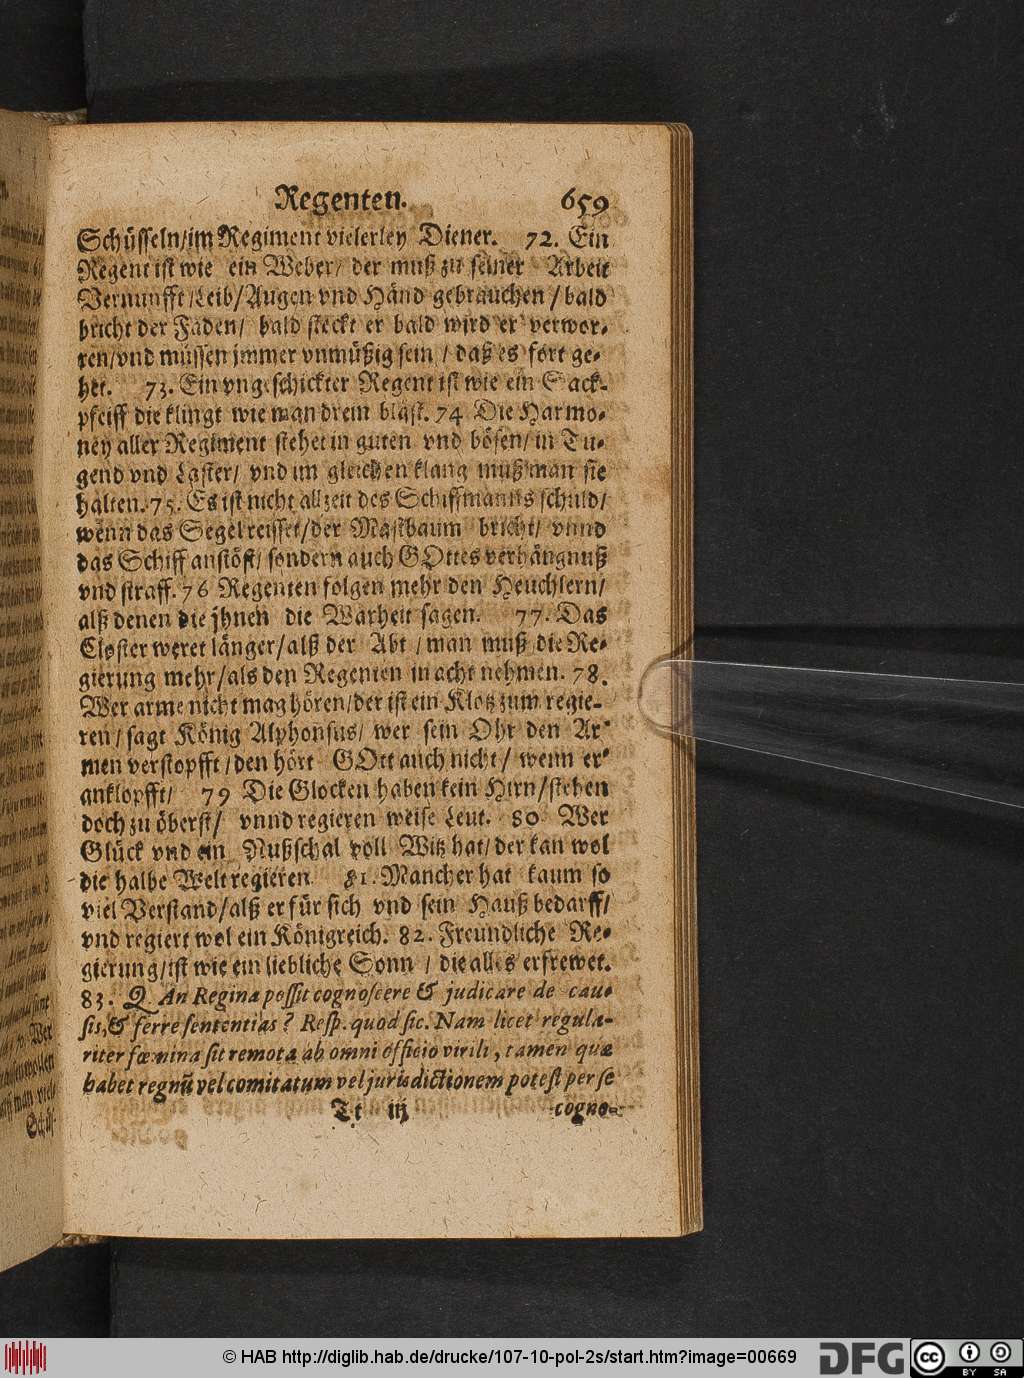 Regenten. 659
Schüsseln/im Regiment vielerley Diener. 72. Ein
Regent ist wie ein Weber/ der muß zu seiner Arbeit
Vernunfft/Leib/Augen vnd Händ gebrauchen/bald
bricht der Faden/ bald steckt er bald wird er verwor-
ren/vnd müssen jmmer vnmüßig sein/daß es fort ge-
het. 73. Ein vngeschickter Regent ist wie ein Sack-
pfeiff die klingt wie man drein bläst. 74 Die Harmo-
ney aller Regiment stehet in guten vnd bösen/in Tu-
gend vnd Laster/ vnd im gleichen klang muß man sie
halten. 75. Es ist nicht allzeit des Schiffmanns schuld/
wenn das Segel reisset/der Mastbaum bricht/ vnnd
das Schiff anstöst/sondern auch GOttes verhängnuß
vnd straff. 76 Regenten folgen mehr den Heuchlern/
alß denen die jhnen die Warheit sagen. 77. Das
Closter weret länger/alß der Abt/man muß die Re-
gierung mehr/als den Regenten in acht nehmen. 78.
Wer arme nicht mag hören/der ist ein Klotz zum regie-
ren/sagt König Alphonsus/wer sein Ohr den Ar-
men verstopfft/den hört GOtt auch nicht/ wenn er
anklopfft/ 79 Die Glocken haben kein Hirn/stehen
doch zu öberst/ vnnd regieren weise Leut. 80 Wer
Glück vnd ein Nußschal voll Witz hat/der kan wol
die halbe Welt regieren. 81. Mancher hat kaum so
viel Verstand/alß er für sich vnd sein Hauß bedarff/
vnd regiert wol ein Königreich. 82. Freundliche Re-
gierung/ist wie ein liebliche Sonn/die alles erfrewet.
83. Q. An Regina possit cognoscere & judicare de cau-
sis, & ferre sententias? Resp. quod sic. Nam licet regula-
riter fœmina sit remota ab omni officio virili, tamen quæ
habet regnũ vel comitatum vel jurisdictionem potest per se
Tt iij cogno-
© HAB http://diglib.hab.de/drucke/107-10-pol-2s/start.htm?image=00669
DFG
cc
BY SA